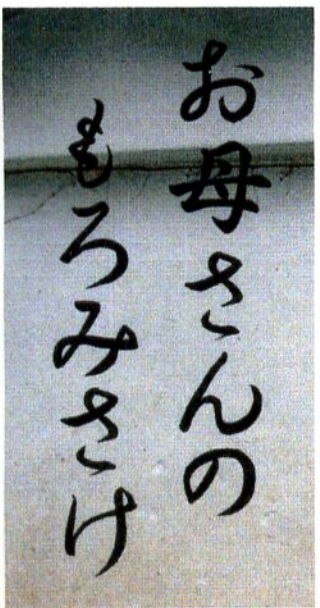 お母さんの
もろみさけ